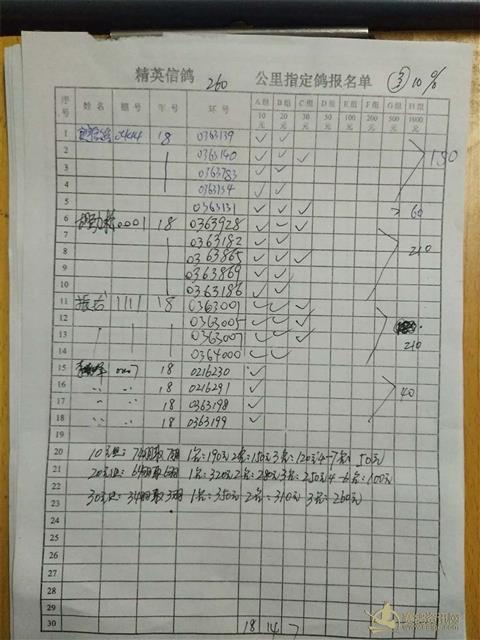 精英信鸽 260 公里指定鸽报名单 ③ 10%
序号 姓名 棚号 年号 环号 A组 B组 C组 D组 E组 F组 G组 H组
10元 20元 30元 50元 100元 200元 500元 1000元
1 0444 18 0363139 ✓ ✓
2 0363140 ✓ ✓ ✓ 180
3 0363783 ✓ ✓
4 0363154 ✓ ✓
5 0363131 ✓ ✓ ✓ > 60
6 0001 18 0363928 ✓ ✓ ✓
7 0363182 ✓ ✓
8 0363865 ✓ ✓ ✓ 210
9 0363869 ✓ ✓
10 0363186 ✓ ✓
11 1111 18 0363001 ✓ ✓ ✓
12 0363005 ✓ ✓ ✓
13 0363007 ✓ ✓ ✓ 210
14 0364000 ✓ ✓
15 18 0216230 ✓
16 18 0216291 ✓ 40
17 18 0363198 ✓
18 18 0363199 ✓
19
20 10元组: 1名: 190元 2名: 150元 3名: 120元 4-7名: 50元
21 20元组: 1名: 320元 2名: 280元 3名: 250元 4-6名: 100元
22
23 30元组: 1名: 350元 2名: 310元 3名: 260元
24
25
26
27
28
29
30 18 14 7